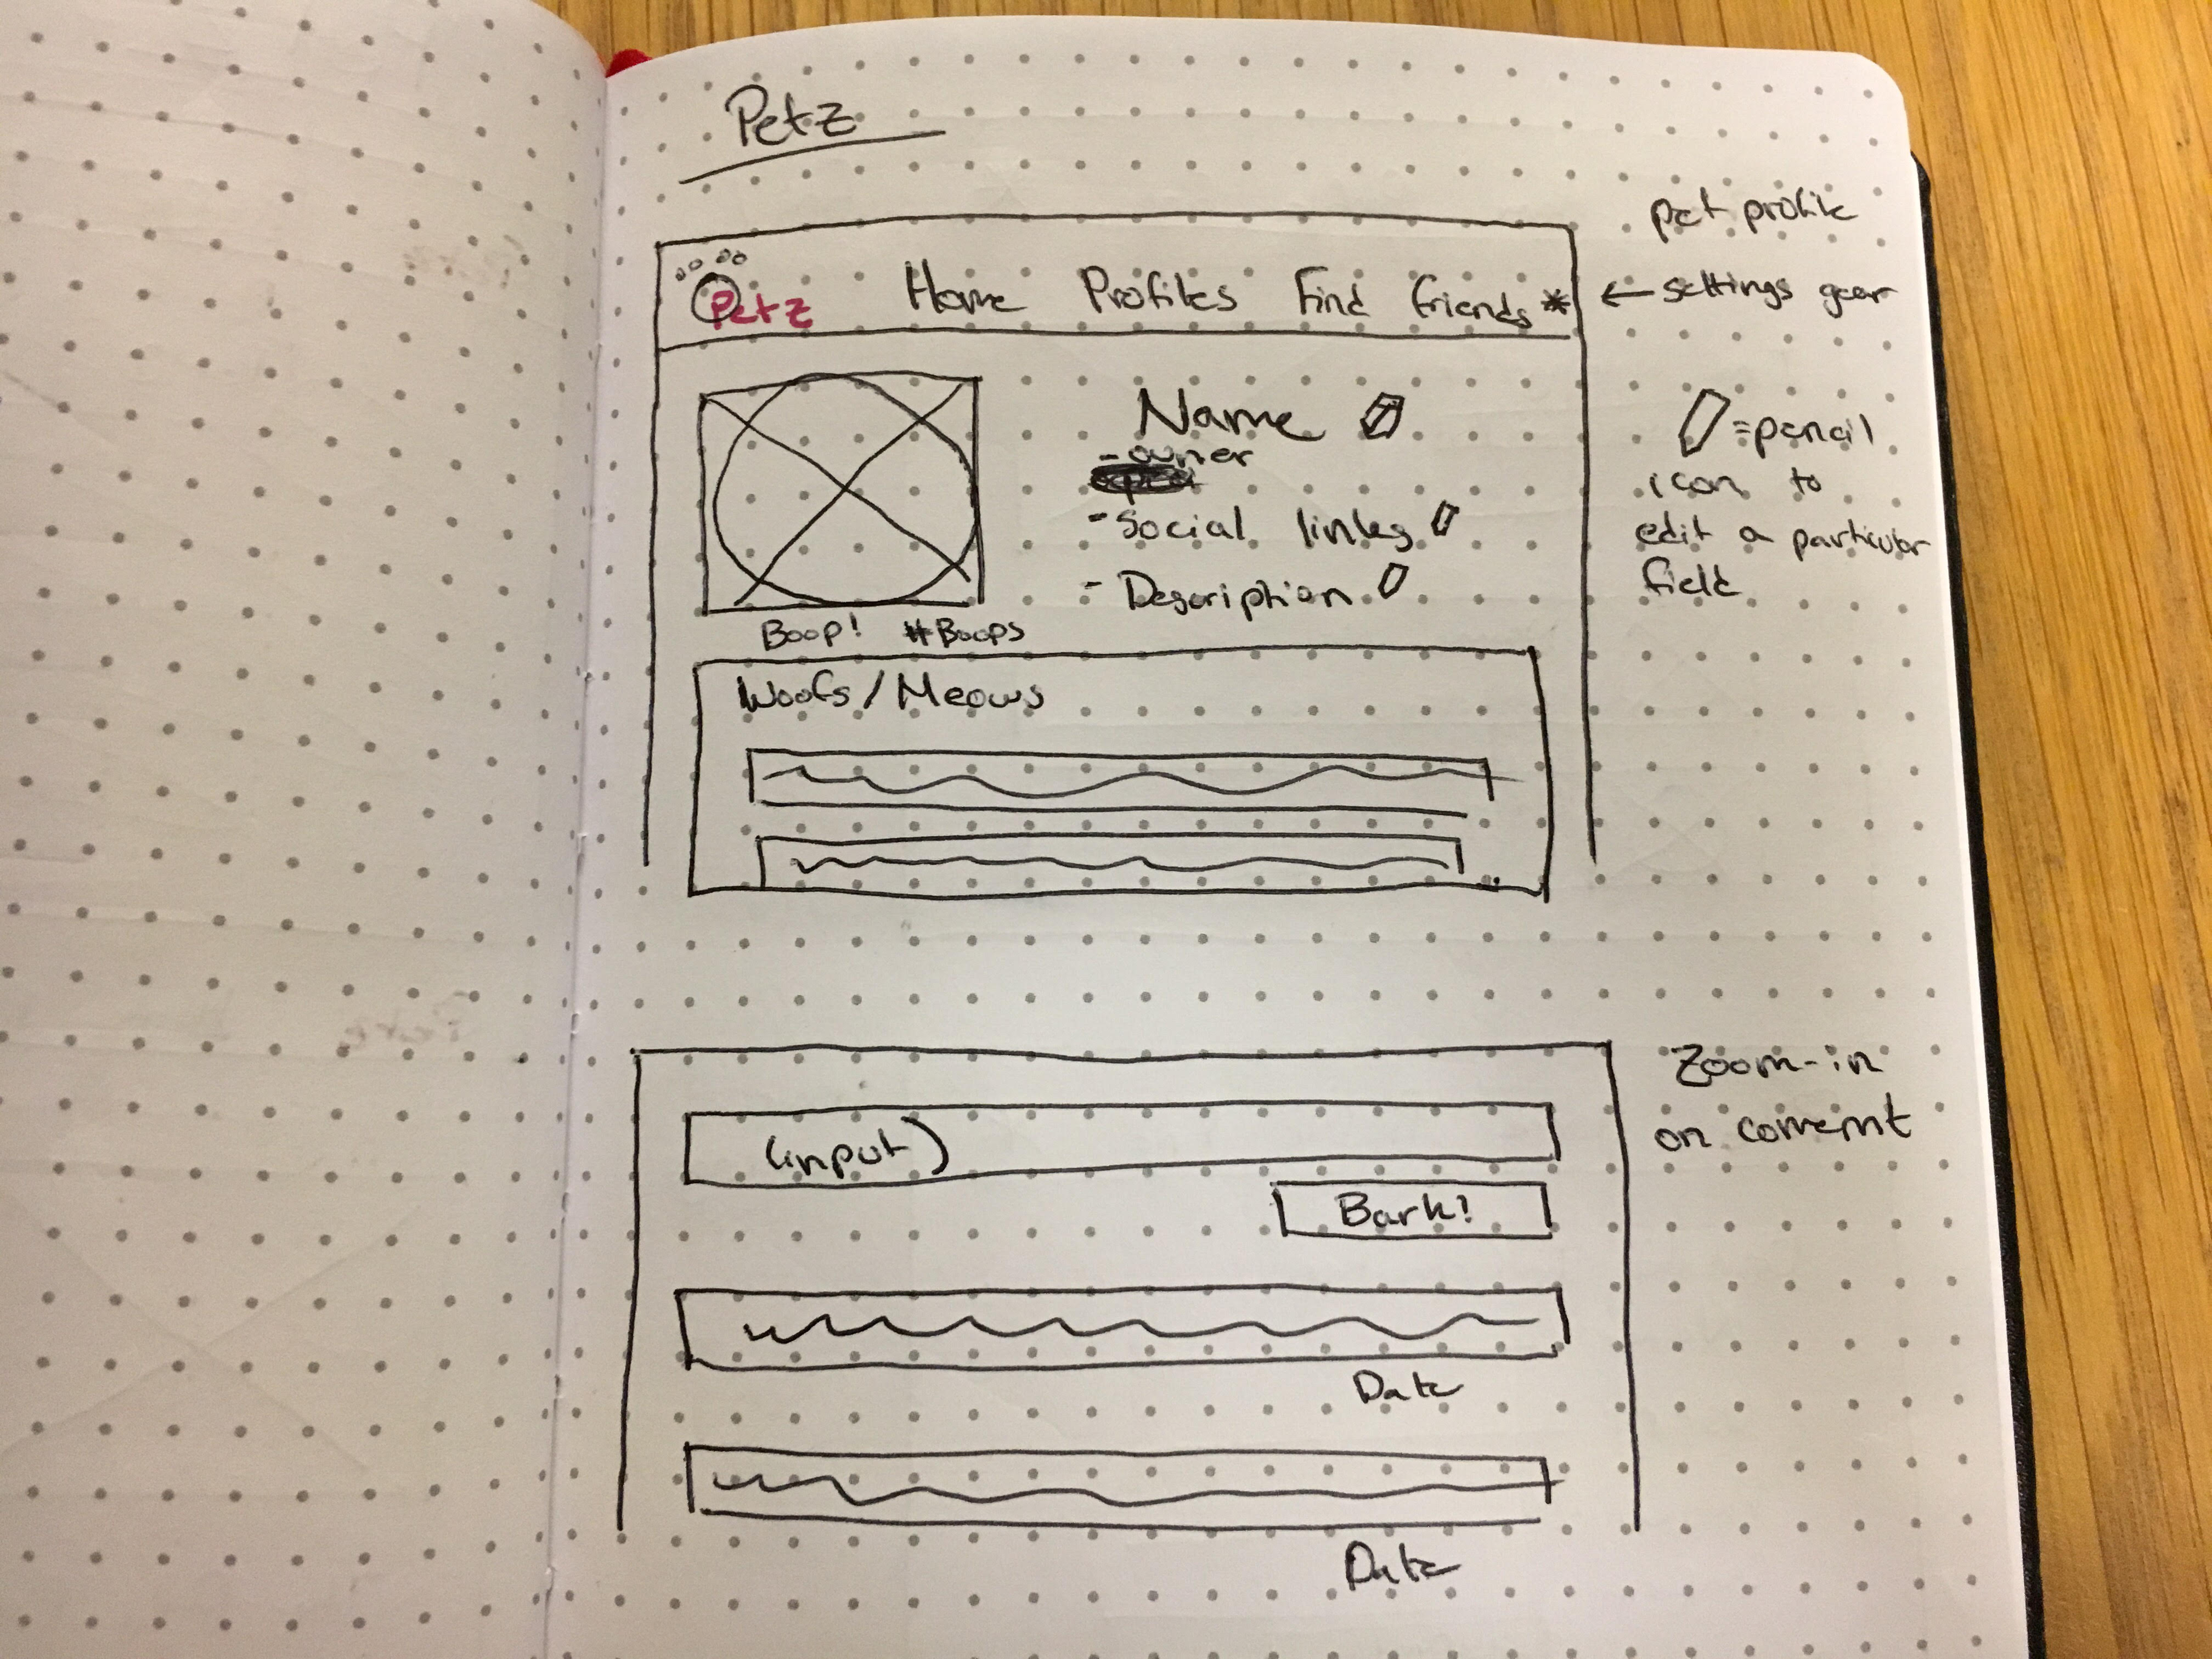 Petz
pet profile
Petz Home Profiles Find friends *
← settings gear
Name
- owner
- Social links
- Description
= pencil
icon to
edit a particular
field
Boop! #Boops
Woofs/Meows
Zoom-in
on comemnt
(input)
Bark!
Date
Date